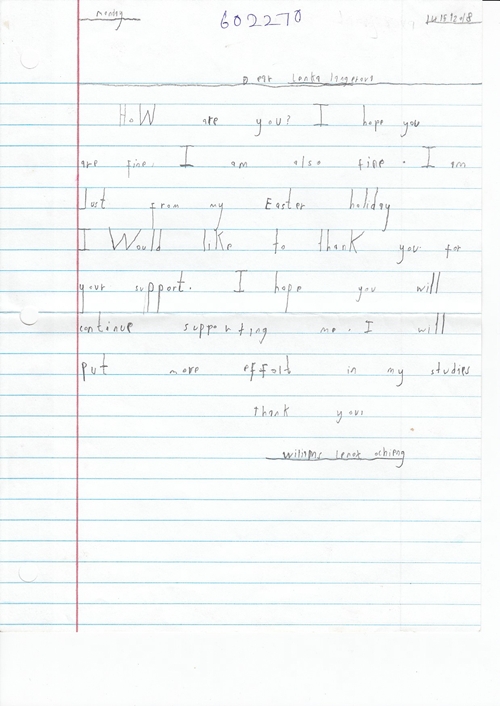 Monday 602270
Dear Lenka
How are you? I hope you
are fine. I am also fine. I am
Just from my Easter holiday
I Would like to thank you for
your support. I hope you will
continue supporting me. I will
put more effort in my studies
thank you